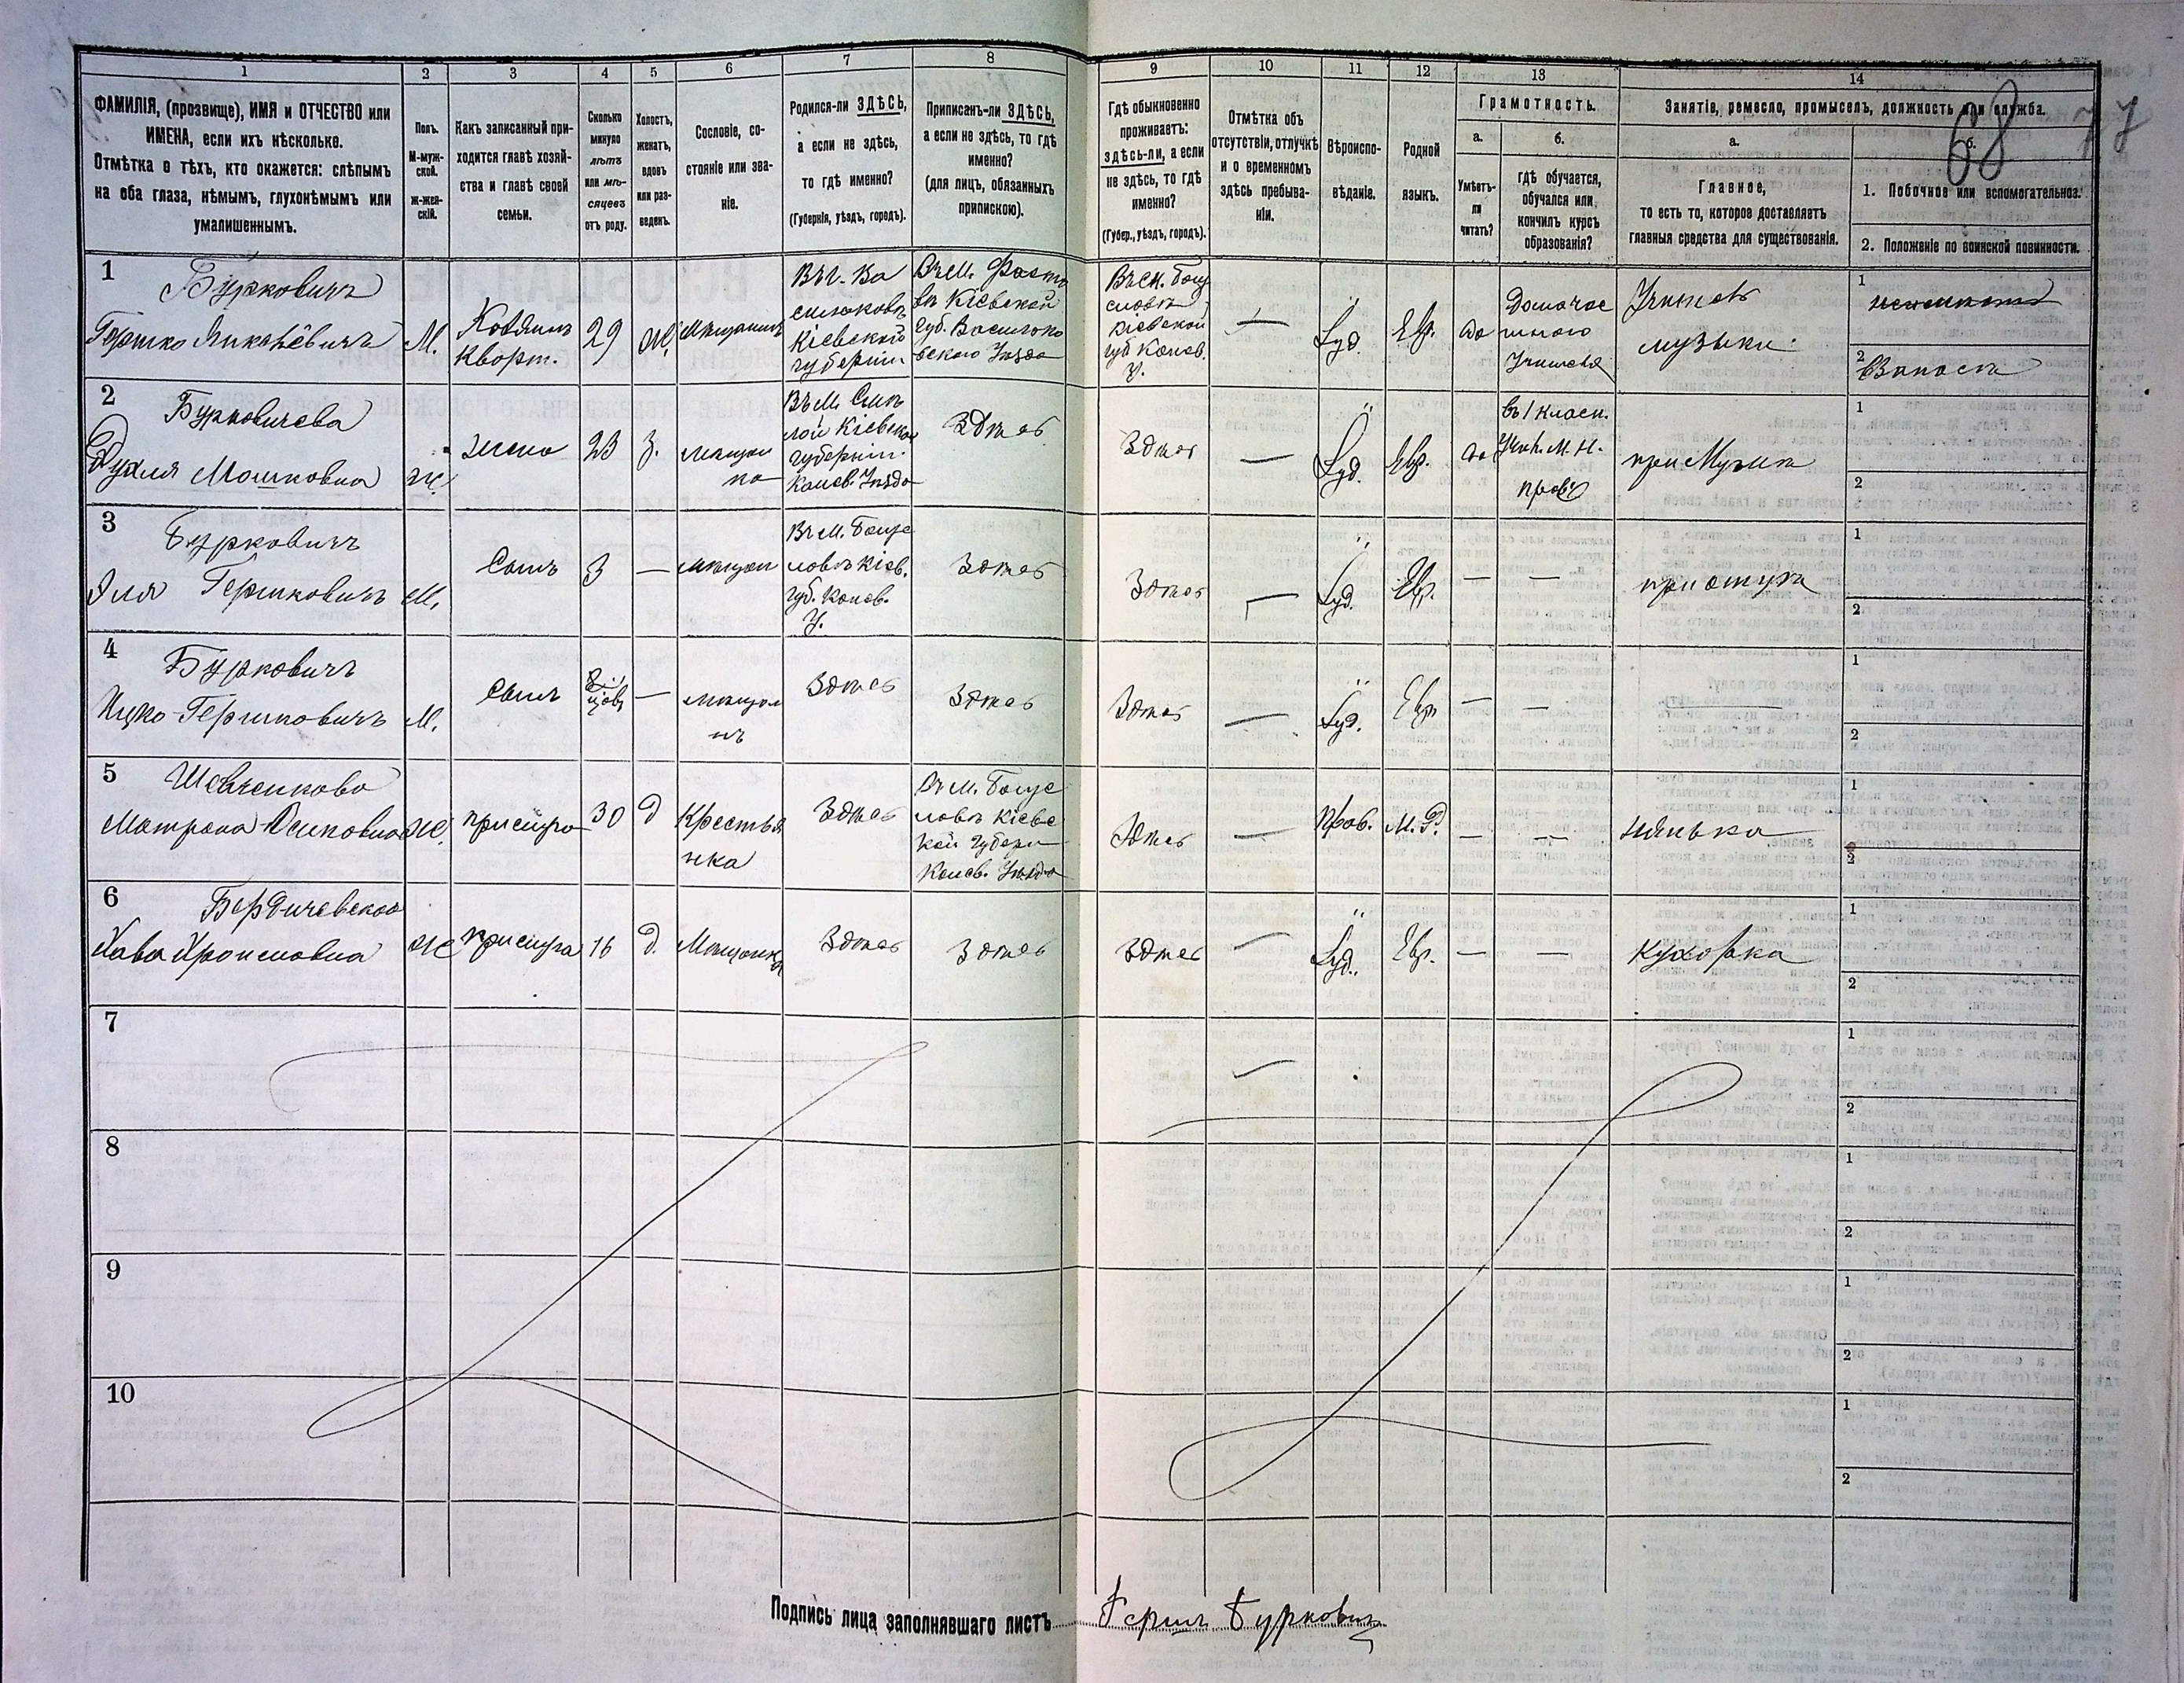 1 2 3 4 5 6 7 8 9 10 11 12 13 14
ФАМИЛІЯ, (прозвище), ИМЯ и ОТЧЕСТВО или
ИМЕНА, если ихъ нѣсколько.
Отмѣтка о тѣхъ, кто окажется: слѣпымъ
на оба глаза, нѣмымъ, глухонѣмымъ или
умалишеннымъ.
Полъ.
М-муж-
ской.
ж-жен-
скій.
Какъ записанный при-
ходится главѣ хозяй-
ства и главѣ своей
семьи.
Сколько
минуло
лѣтъ
или мѣ-
сяцевъ
отъ роду.
Холостъ,
женатъ,
вдовъ
или раз-
веденъ.
Сословіе, со-
стояніе или зва-
ніе.
Родился-ли ЗДѢСЬ,
а если не здѣсь,
то гдѣ именно?
(Губернія, уѣздъ, городъ).
Приписанъ-ли ЗДѢСЬ,
а если не здѣсь, то гдѣ
именно?
(для лицъ, обязанныхъ
припискою).
Гдѣ обыкновенно
проживаетъ:
здѣсь-ли, а если
не здѣсь, то гдѣ
именно?
(Губер., уѣздъ, городъ).
Отмѣтка объ
отсутствіи, отлучкѣ
и о временномъ
здѣсь пребыва-
ніи.
Вѣроиспо-
вѣданіе.
Родной
языкъ.
Грамотность.
а.
Умѣетъ-
ли
читать?
б.
гдѣ обучается,
обучался или
кончилъ курсъ
образованія?
Занятіе, ремесло, промыселъ, должность или служба.
68 77
а.
Главное,
то есть то, которое доставляетъ
главныя средства для существованія.
б.
1. Побочное или вспомогательное.
2. Положеніе по воинской повинности.
1
Бурковичъ
Гершко
М.
Хозяинъ
Кварт.
29
Ж.
Мѣщанинъ
Въ г. Ва
сильковѣ
Кіевской
губерніи
Въ м. Фасто
вѣ Кіевской
Губ. Васильков
скаго Уѣзда
Въ м. Богу
славѣ
Кіевской
губ. Канев.
У.
—
Іуд.
Евр.
да
Домаш
училища
Учитель
музыки.
1
2
2
Бурковичева
Мошковна
Ж.
жена
23
З.
мѣщан
ка
Въ м.
Кіевской
губерніи.
Канев. Уѣзда
Здѣсь
Здѣсь
—
Іуд.
Евр.
да
въ 1 класн.
Учил. М. Н.
просв.
при мужѣ
1
2
3
Бурковичъ
Эля Гершковичъ
М.
Сынъ
3
—
мѣщан
Въ м. Богу
славѣ Кіев.
губ. Канев.
У.
Здѣсь
Здѣсь
—
Іуд.
Евр.
— —
при отцѣ
1
2
4
Бурковичъ
Ицко Гершковичъ
М.
Сынъ
8
—
мѣщан
нъ
Здѣсь
Здѣсь
Здѣсь
—
Іуд.
Евр.
— —
1
2
5
Шевченкова
Матрона Осиповна
Ж.
прислуга
30
Д
Крестья
нка
Здѣсь
Въ м. Богу
славѣ Кіевс
кой Губерн
Канев. Уѣзда
Здѣсь
—
Прав.
М. Р.
— —
нянька
1
2
6
Бердичевская
Хава Хроимовна
Ж
прислуга
16
Д.
Мѣщанка
Здѣсь
Здѣсь
Здѣсь
—
Іуд.
Евр.
— —
Кухорка
1
2
7
—
1
2
8
1
2
9
1
2
10
1
2
Подпись лица заполнявшаго листъ Гершъ Бурковичъ